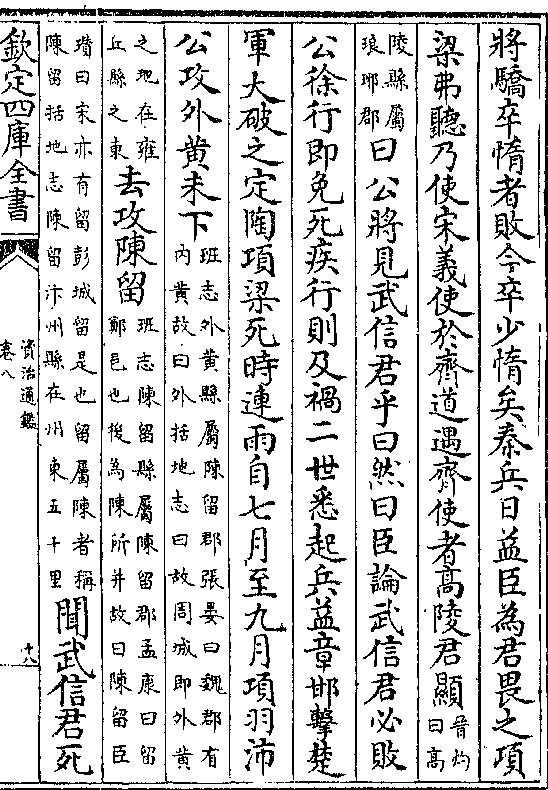 將驕卒惰者敗今卒少惰矣秦兵日益臣為君畏之項
梁弗聽乃使宋義使於齊道遇齊使者髙陵君顯
晉灼
曰髙
陵縣屬
琅邪郡
曰公將見武信君乎曰然曰臣論武信君必敗
公徐行即免死疾行則及禍二世悉起兵益章邯擊楚
軍大破之定陶項梁死時連雨自七月至九月項羽沛
公攻外黄未下
班志外黄縣屬陳留郡張晏曰魏郡有
内黄故曰外括地志曰故周城即外黄
之地在雍
丘縣之東
去攻陳留
班志陳留縣屬陳留郡孟康曰留
鄭邑也後為陳所并故曰陳留臣
瓚曰宋亦有留彭城留是也留屬陳者稱
陳留括地志陳留汴州縣在州東五十里
聞武信君死
欽定四庫全書
資治通鑑
卷八
十八